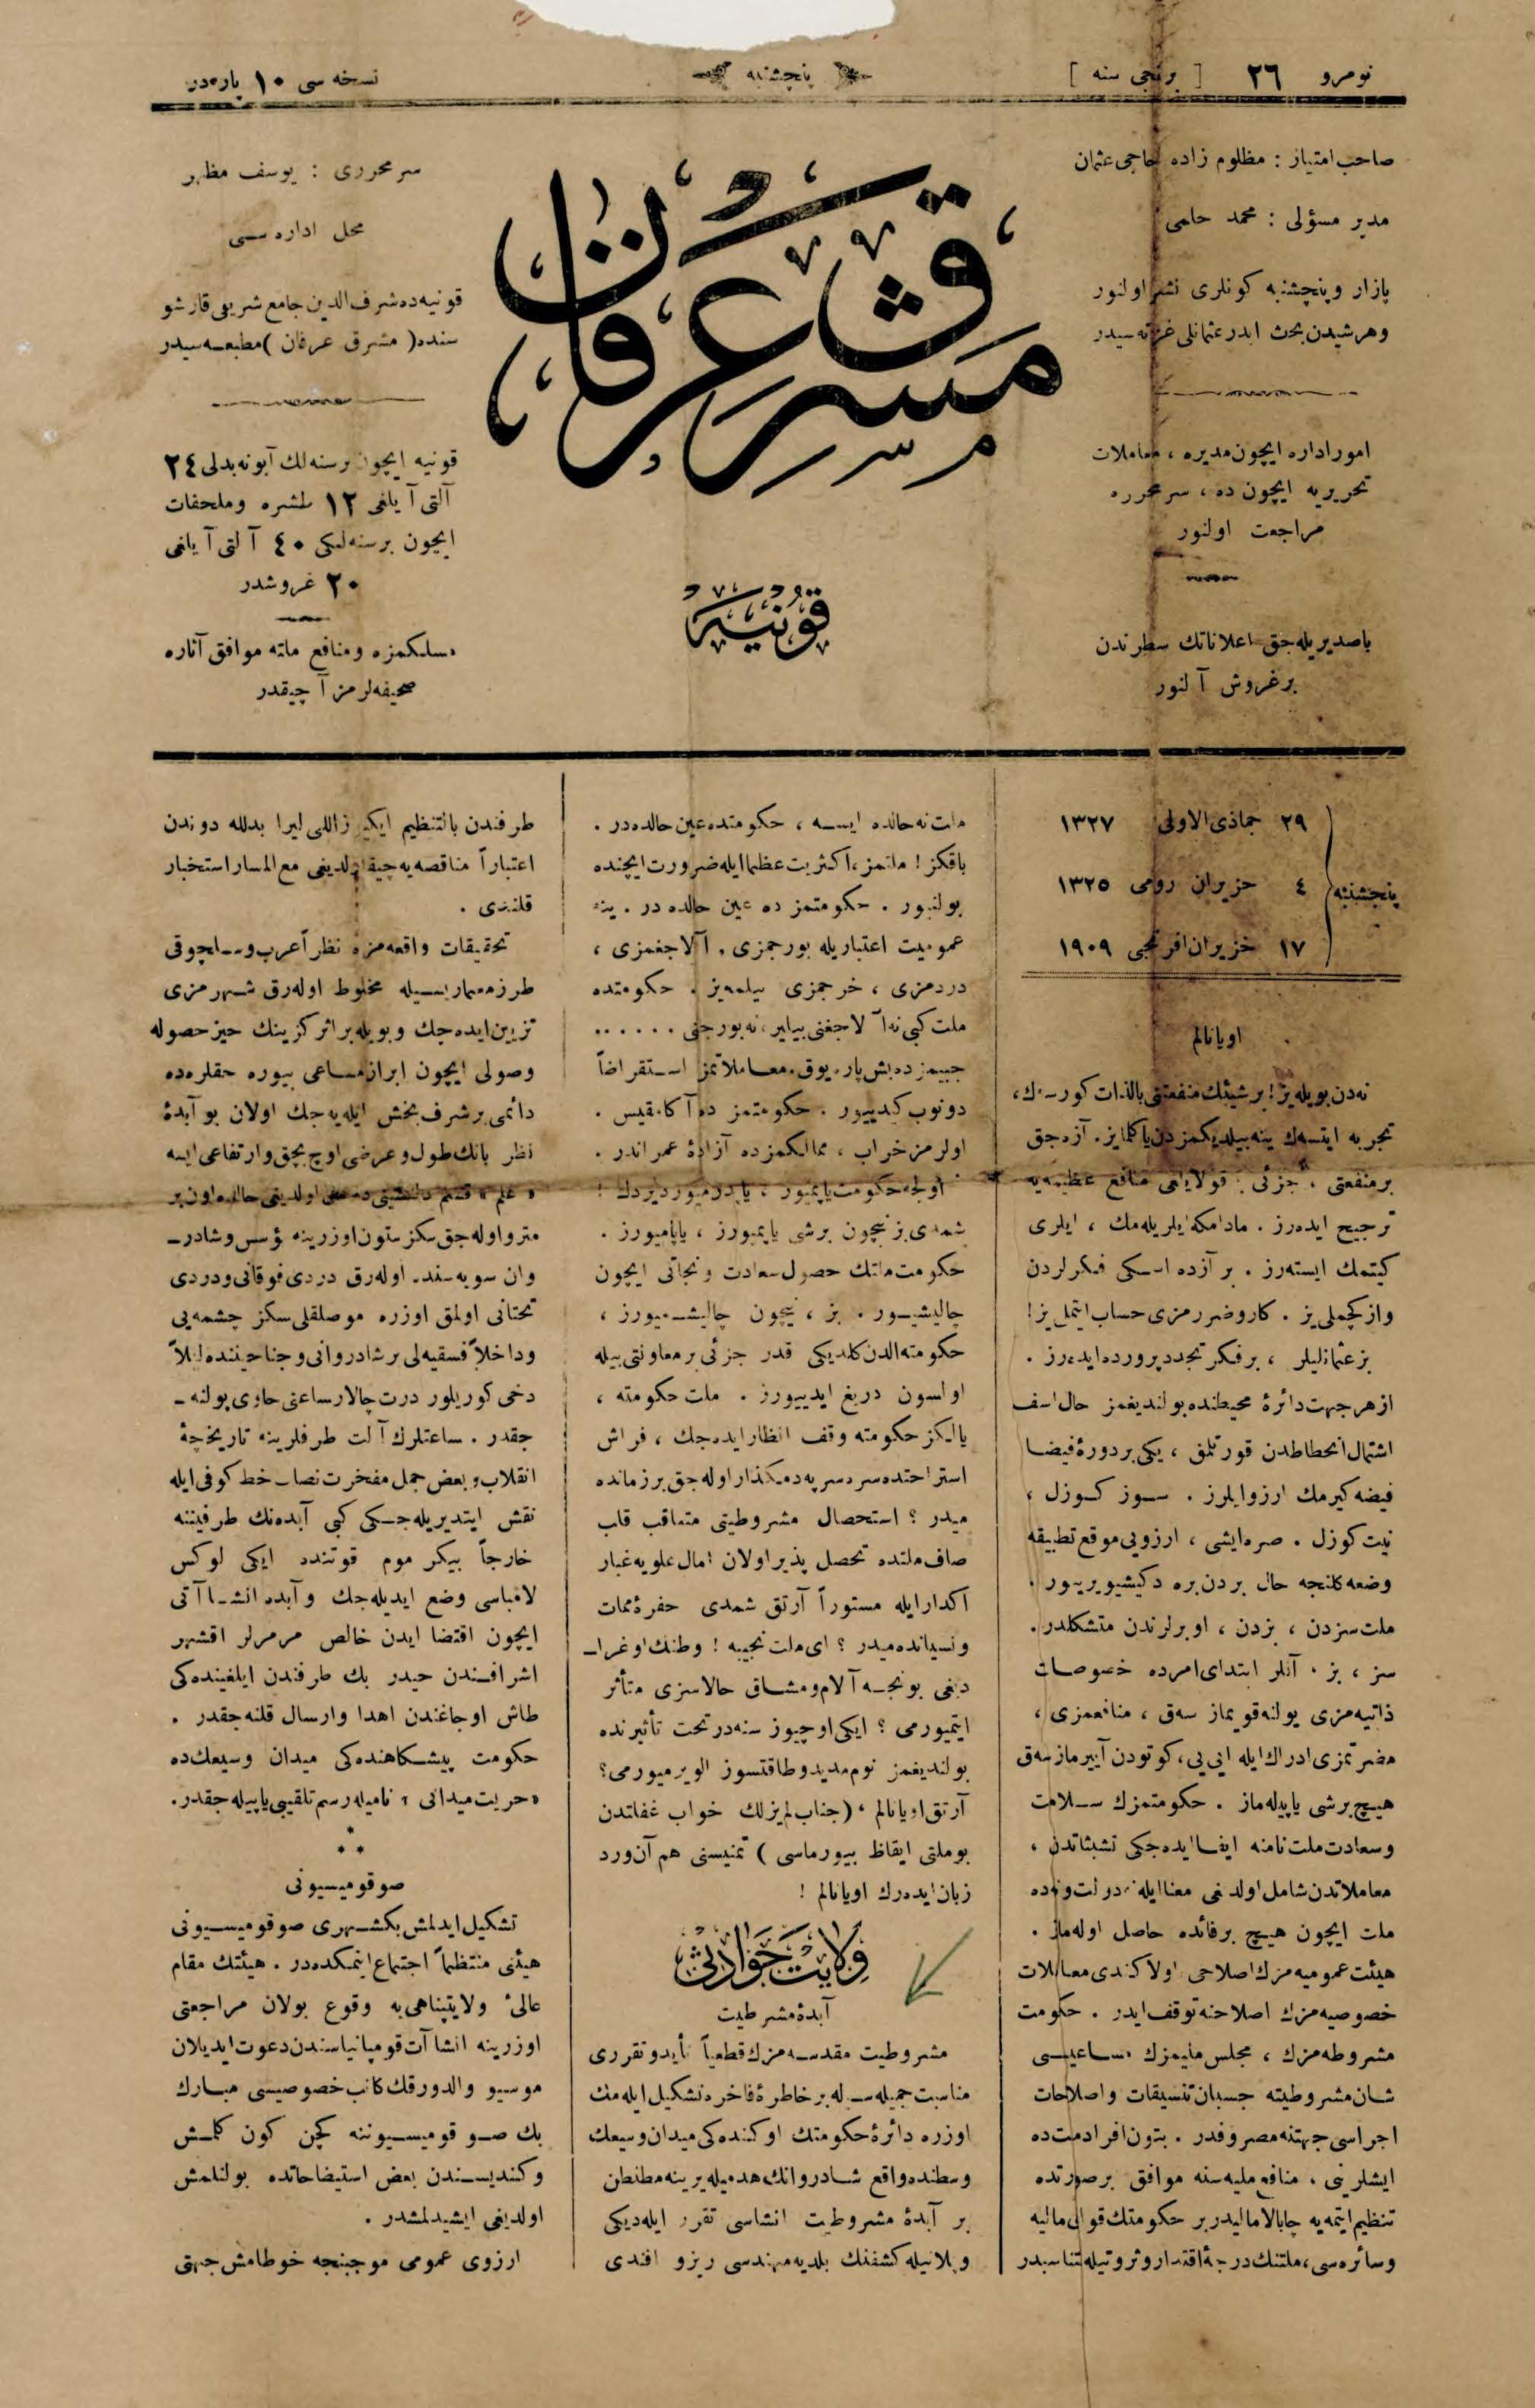 نومرو ٢٦ [ برنجی سنه ]
پنچشنبه
نسخه سی ١٠ پاره‌در
صاحب امتیاز : مظلوم زاده حاجی عثمان
مدیر مسؤلی : محمد حلمی
پازار و پنچشنبه كونلری نشر اولنور
وهرشیدن بحث ایدر عثمانلی غزته سیدر
امور اداره ایچون مدیره ، معاملات
تحریریه ایچون ده ، سرمحرره
مراجعت اولنور
باصدیریله‌جق اعلاناتك سطرندن
برغروش آلنور
مشرق عرفان
قونیه
سرمحرری : یوسف مظهر
محل اداره سی
قونیه‌ده شرف الدین جامع شریفی قارشو
سنده ( مشرق عرفان ) مطبعه سیدر
قونیه ایچون برسنه لك آبونه بدلی ٢٤
آلتی آیلغی ١٢ طشره وملحقات
ایچون برسنه لكی ٤٠ آلتی آیلغی
٢٠ غروشدر
مسلكمزه ومنافع ملته موافق آثاره
صحیفه لرمز آچیقدر
پنجشنبه
٢٩ جماذی الاولی ١٣٢٧
٤ حزیران رومی ١٣٢٥
١٧ حزیران افرنجی ١٩٠٩
اویانالم
نه‌دن بویله یز ! برشیئك منفعتنی بالذات كورسه‌ك ،
تجربه ایتسه‌ك ینه بیلدیكمزدن یاكلمایز . آزه‌جق
برمنفعتی ، جزئی قولایلغی منافع عظیمه یه
ترجیح ایده‌رز . مادامكه ایلریله مك ، ایلری
كیتمك ایسته‌رز . بر آزده اسكی فكرلردن
وازكچملی یز . كاروضررمزی حساب ایتملی یز !
بز عثمانلیلر ، برفكر تجدد پرورده ایده‌رز .
ازهرجهت دائرۀ محیطنده بولندیغمز حال اسف
اشتمال انحطاطدن قورتلمق ، یكی بر دورۀ فیضا
فیضه كیرمك ارزو ایلرز . سوز كوزل ،
نیت كوزل . صره ایشی ، ارزویی موقع تطبیقه
وضعه كلنجه حال بردن بره دكیشیویریور .
ملت سزدن ، بزدن ، اوبرلرندن متشكلدر .
سز ، بز ، آنلر ابتدای امرده خصوصات
ذاتیه مزی یولنه قویماز سه‌ق ، منافعمزی ،
مضرتمزی ادراك ایله ایی یی ، كوتودن آییرمازسه‌ق
هیچ برشی یاپیله ماز . حكومتمزك سلامت
وسعادت ملت نامنه ایفا ایده‌جكی تشبثاتدن ،
معاملاتدن شامل اولدیغی معنا ایله دولت ونه‌ده
ملت ایچون هیچ برفائده حاصل اوله ماز .
هیئت عمومیه مزك اصلاحی اولا كندی معاملات
خصوصیه مزك اصلاحنه توقف ایدر . حكومت
مشروطه مزك ، مجلس ملیمزك مساعیسی
شان مشروطیته جسبان تنسیقات واصلاحات
اجراسی جهتنه مصروفدر . بتون افراد ملت ده
ایشلرینی ، منافع ملیه سنه موافق برصورتده
تنظیم ایتمه یه چابالامالیدر بر حكومتك قوای مالیه
وسائره سی ، ملتنك درجۀ اقتدار وثروتیله متناسبدر
ملت نه حالده ایسه ، حكومتده عین حالده‌در .
باقكز ! ملتمز ، اكثریت عظما ایله ضرورت ایچنده
بولنیور . حكومتمز ده عین حالده در . ینه
عمومیت اعتباریله بورجمزی ، آلاجغمزی ،
دردمزی ، خرجمزی بیلمه‌یز . حكومتده
ملت كبی نه آلاجغنی بیلیر ، نه بورجنی . . . . . .
جیبمزده بش پاره یوق . معاملاتمز استقراضاً
دونوب كیدییور . حكومتمز ده آكا مقیس .
اولرمز خراب ، ممالكمزده آزادۀ عمراندر .
اولجه حكومت یاپمیور ، یاپدرمیور دیردك !
شمدی بز نیچون برشی یاپمیورز ، یاپامیورز .
حكومت ملتك حصول سعادت ونجاتی ایچون
چالیشیور . بز ، نیچون چالیشمیورز ،
حكومته الدن كلدیكی قدر جزئی بر معاونتی بیله
اولسون دریغ ایدییورز . ملت حكومته ،
یالكز حكومته وقف انظار ایده‌جك ، فراش
استراحتده سره سرپه دمكذار اوله جق برزمانده
میدر ؟ استحصال مشروطیتی متعاقب قلب
صاف ملتده تحصل پذیر اولان امال علویه غبار
اكدار ایله مستوراً آرتق شمدی حفرۀ ممات
ونسیانده میدر ؟ ای ملت نجیبه ! وطنك اوغرا
دیغی بونجه آلام ومشاق حالا سزی متأثر
ایتمیورمی ؟ ایكی اوچیوز سنه‌در تحت تأثیرنده
بولندیغمز نوم مدید وطاقتسوز الویرمیورمی ؟
آرتق اویانالم ، ( جناب لم یزلك خواب غفلتدن
بوملتی ایقاظ بیورماسی ) تمنیسنی هم آن ورد
زبان ایده‌رك اویانالم !
ولایت حوادثی
آبدۀ مشرطیت
مشروطیت مقدسه مزك قطعیاً تأید وتقرری
مناسبت جمیله سیله بر خاطرۀ فاخره تشكیل ایله مك
اوزره دائرۀ حكومتك اوكنده كی میدان وسیعك
وسطنده واقع شادروانك هدمیله یرینه مطنطن
بر آبدۀ مشروطیت انشاسی تقرر ایله‌دیكی
وپلانیله كشفنك بلدیه مهندسی ریزو افندی
طرفندن بالتنظیم ایكیوز اللی لیرا بدلله دوندن
اعتباراً مناقصه یه چیقارلدیغی مع المسار استخبار
قلندی .
تحقیقات واقعه مزه نظراً عرب وسلچوقی
طرز معماریسیله مخلوط اوله‌رق شهرمزی
تزیین ایده جك وبویله بر اثر كزینك حیز حصوله
وصولی ایچون ابراز مساعی بیوره حقلره‌ده
دائمی برشرف بخش ایله یه جك اولان بو آبدۀ
نظر بانك طول وعرضی اوچ بچق وارتفاعی ایسه
مترو اوله جق سكز ستون اوزرینه مؤسس وشادر
وان سویه سنده اوله‌رق دردی فوقانی ودردی
تحتانی اولمق اوزره موصلقلی سكز چشمه یی
وداخلاً فسقیه لی بر شادروانی وجناحیننده لیلاً
دخی كوریلور درت چالار ساعتی حاوی بولنه
جقدر . ساعتلرك آلت طرفلرینه تاریخجۀ
انقلاب وبعض جمل مفخرت نصاب خط كوفی ایله
نقش ایتدیریله جكی كبی آبده نك طرفیننه
خارجاً بیكر موم قوتنده ایكی لوكس
لامباسی وضع ایدیله‌جك وآبده انشاآتی
ایچون اقتضا ایدن خالص مرمرلر اقشهر
اشرافندن حیدر بك طرفندن ایلغینده كی
طاش اوجاغندن اهدا وارسال قلنه جقدر .
حكومت پیشكاهنده كی میدان وسیعك ده
« حریت میدانی » نامیله رسم تلقیبی یاپیله جقدر .
* * *
صو قومیسیونی
تشكیل ایدلمش بكشهری صو قومیسیونی
هیئتی منتظماً اجتماع ایتمكده‌در . هیئتك مقام
عالئ ولایتپناهی یه وقوع بولان مراجعتی
اوزرینه انشاآت قومپانیاسندن دعوت ایدیلان
موسیو والدورقك كاتب خصوصیسی مبارك
بك صو قومیسیوننه كچن كون كلمش
وكندیسندن بعض استیضاحاتده بولنلمش
اولدیغی ایشیدلمشدر .
ارزوی عمومی موجبنجه خوطامش جهتی